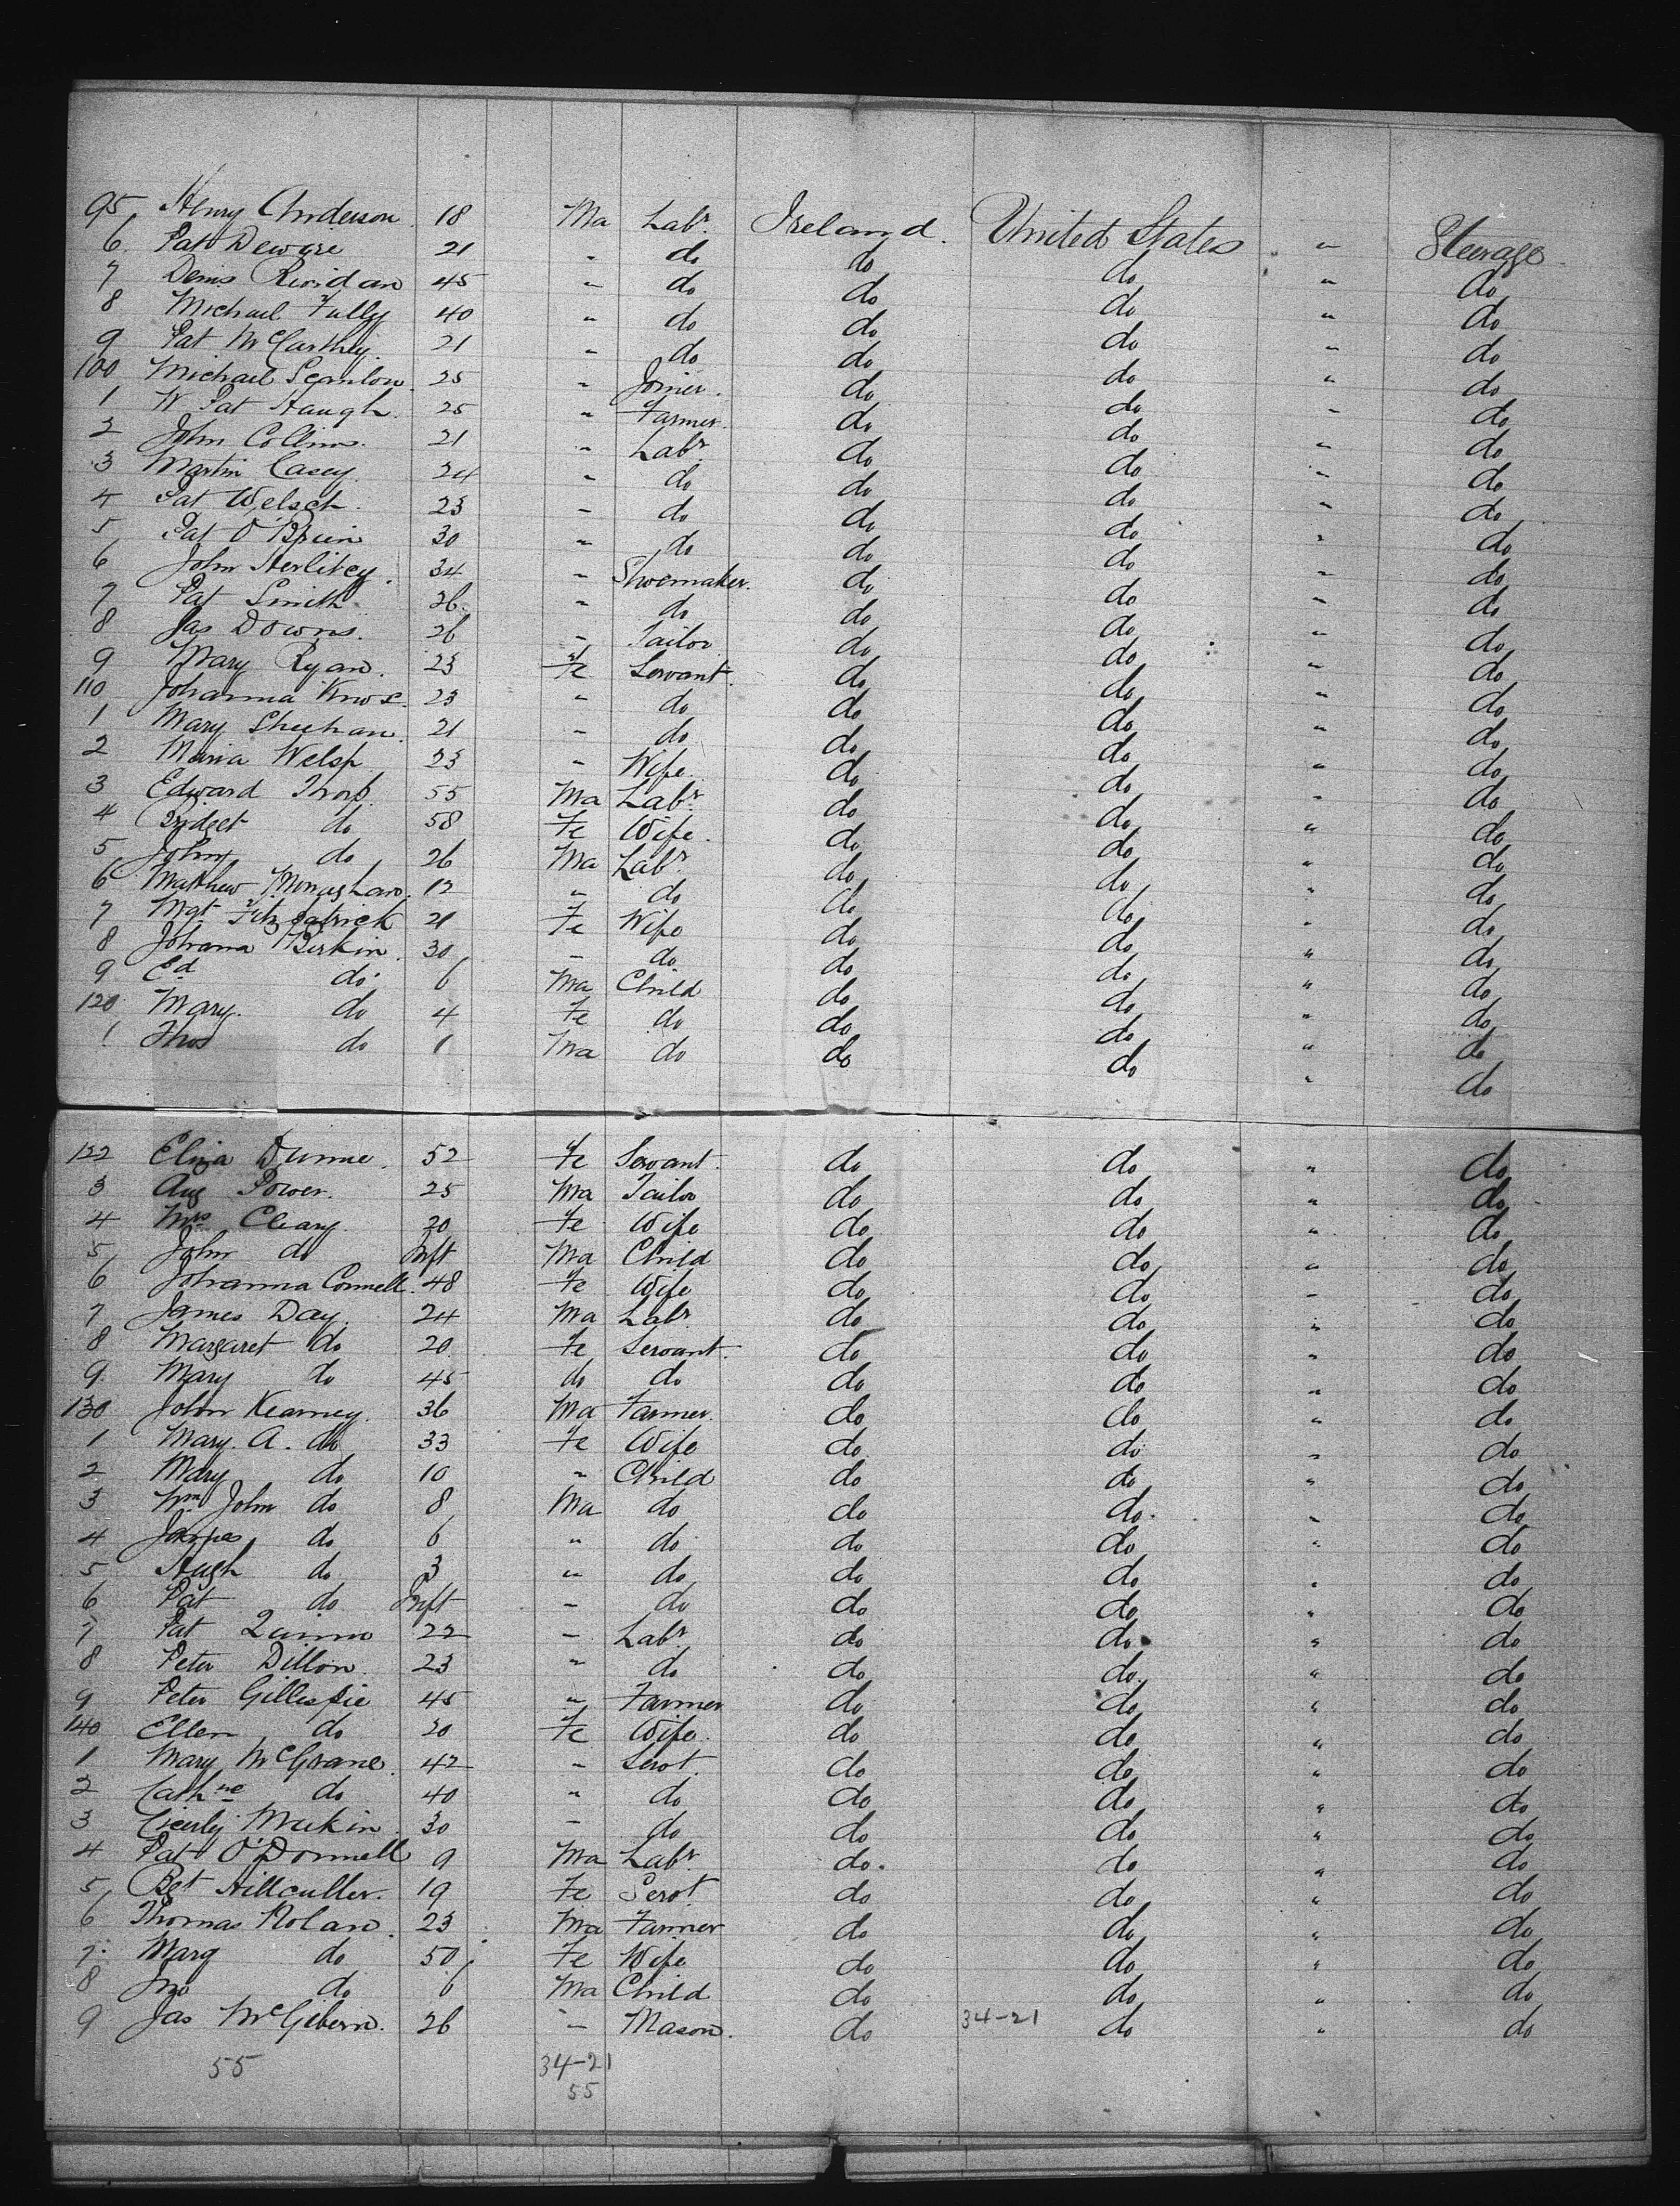 95 Henry Anderson 18 Ma Labr. Ireland. United States " Steerage
6 Pat Dewire 21 " do do do " do
7 Denis Riordan 45 " do do do " do
8 Michael Tully 40 " do do do " do
9 Pat McCarthy 21 " do do do " do
100 Michael Scanlon 25 " Joiner. do do " do
1 W Pat Haugh 25 " Farmer. do do " do
2 John Collins. 21 " Labr. do do " do
3 Martin Casey 24 " do do do " do
4 Pat Welsch. 23 " do do do " do
5 Pat O'Brien 30 " do do do " do
6 John Herlihey. 34 " Shoemaker. do do " do
7 Pat Smith 36 " do do do " do
8 Jas Downs. 26 " Tailor do do " do
9 Mary Ryan. 23 Fe Servant. do do " do
110 Johanna Knox. 23 " do do do " do
1 Mary Sheehan. 21 " do do do " do
2 Maria Welsh 23 " Wife. do do " do
3 Edward Thorp. 55 Ma Labr. do do " do
4 Bridget do 58 Fe Wife. do do " do
5 John do 26 Ma Labr. do do " do
6 Matthew Monaghan. 12 " do do do " do
7 Mgt Fitzpatrick 21 Fe Wife do do " do
8 Johanna 30 " do do do " do
9 Ed do 6 Ma Child do do " do
120 Mary. do 4 Fe do do do " do
1 Thos do 1 Ma do do do " do
122 Eliza Dunne. 52 Fe Servant. do do " do
3 Aug Power. 25 Ma Tailor do do " do
4 Mrs Cleary 30 Fe Wife do do " do
5 John do Inft Ma Child do do " do
6 Johanna Connell. 48 Fe Wife do do " do
7 James Day. 24 Ma Labr. do do " do
8 Margaret do 20 Fe Servant. do do " do
9. Mary do 45 do do do do " do
130 John Kearney. 36 Ma Farmer. do do " do
1 Mary. A. do 33 Fe Wife do do " do
2 Mary do 10 " Child do do " do
3 Wm John do 8 Ma do do do. " do
4 James do 6 " do do do " do
5 Hugh do 3 " do do do " do
6 Pat do Inft " do do do " do
7 Pat Quinn 22 " Labr. do do " do
8 Peter Dillon. 23 " do do do " do
9 Peter Gillespie 45 " Farmer do do " do
140 Ellen do 30 Fe Wife. do do " do
1 Mary McGrane. 42 " Servt. do do " do
2 Cathne do 40 " do do do " do
3 Cicerly Meekin. 30 " do do do " do
4 Pat O'Donnell 9 Ma Labr. do. do " do
5 Bgt 19 Fe Servt do do " do
6 Thomas Nolan. 23 Ma Farmer do do " do
7 Marg do 50 Fe Wife do do " do
8 Jno do 6 Ma Child do do " do
9 Jas McGibern. 26 " Mason. do 34-21 do " do
55 34-21
55